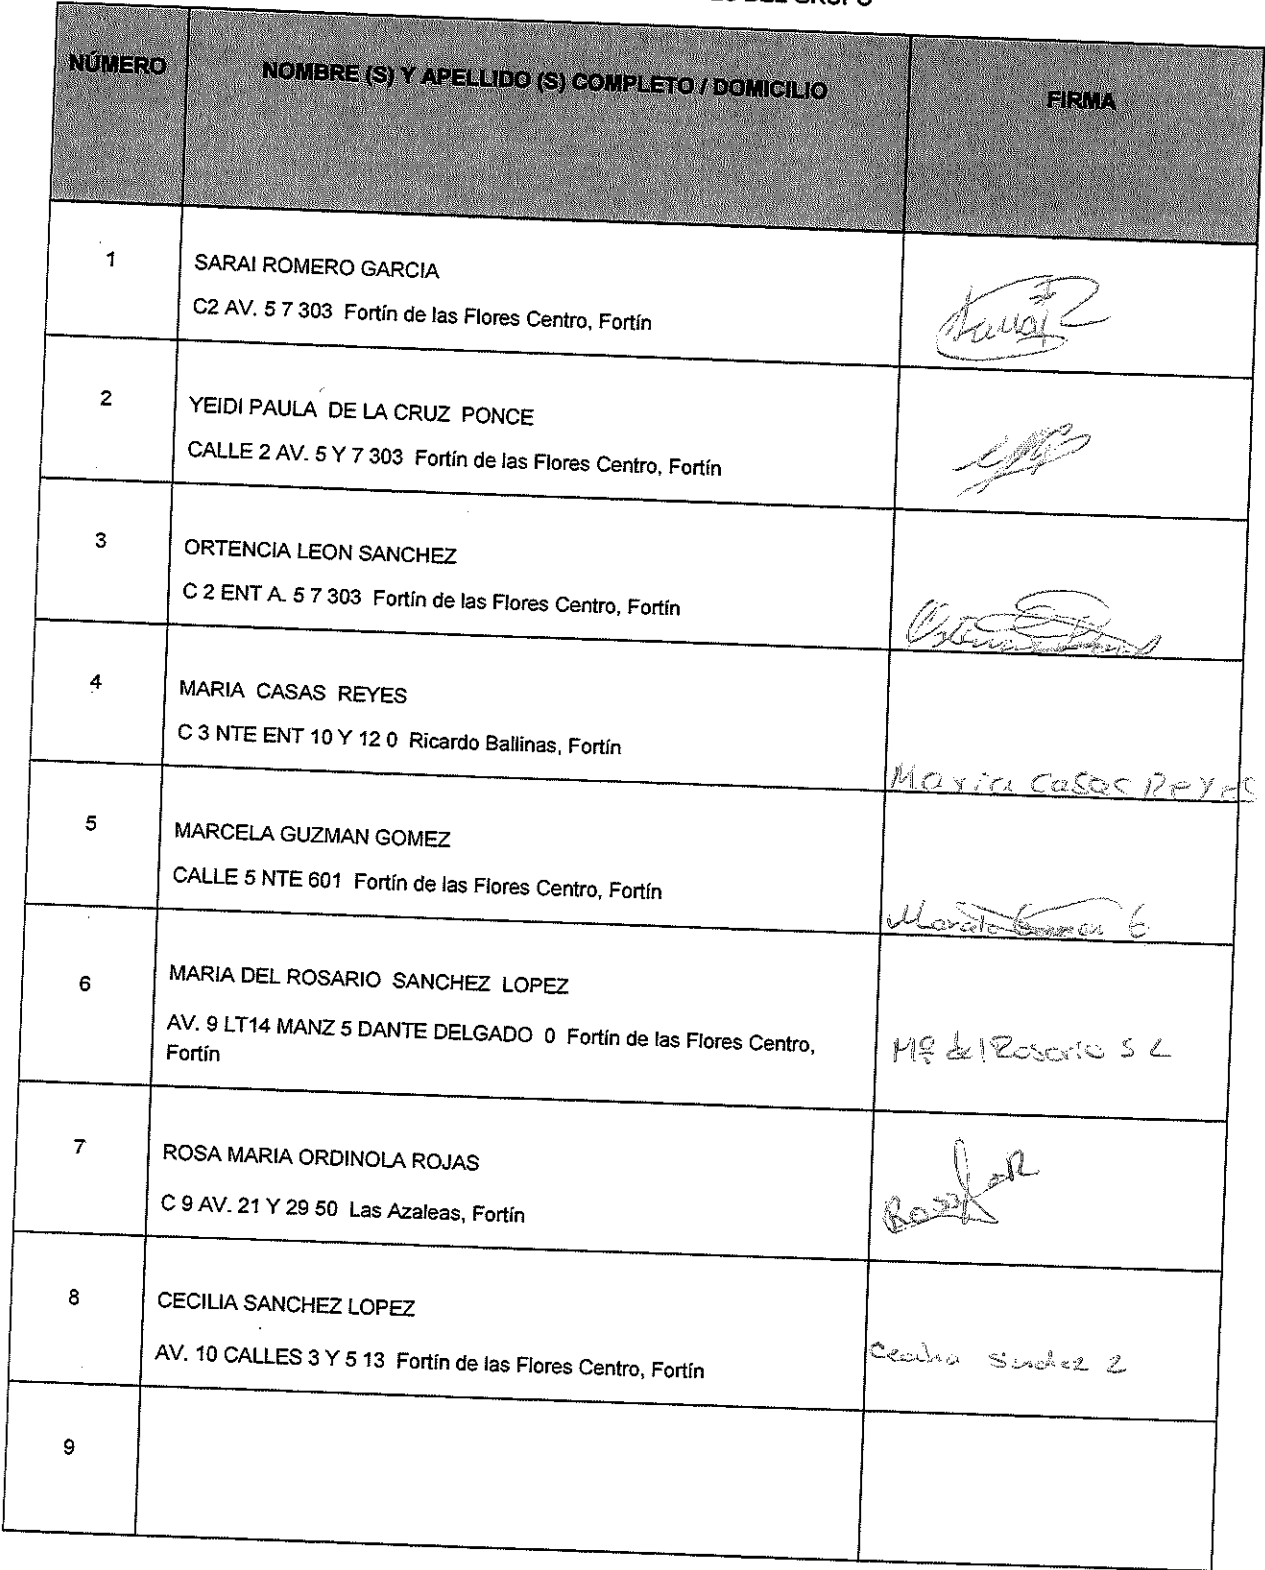 DEL GRUPO
NÚMERO NOMBRE (S) Y APELLIDO (S) COMPLETO / DOMICILIO FIRMA
1 SARAI ROMERO GARCIA
C2 AV. 5 7 303 Fortín de las Flores Centro, Fortín
2 YEIDI PAULA DE LA CRUZ PONCE
CALLE 2 AV. 5 Y 7 303 Fortín de las Flores Centro, Fortín
3 ORTENCIA LEON SANCHEZ
C 2 ENT A. 5 7 303 Fortín de las Flores Centro, Fortín
4 MARIA CASAS REYES
C 3 NTE ENT 10 Y 12 0 Ricardo Ballinas, Fortín
Maria Casas Reyes
5 MARCELA GUZMAN GOMEZ
CALLE 5 NTE 601 Fortín de las Flores Centro, Fortín
6 MARIA DEL ROSARIO SANCHEZ LOPEZ
AV. 9 LT14 MANZ 5 DANTE DELGADO 0 Fortín de las Flores Centro,
Fortín
Mª del Rosario S L
7 ROSA MARIA ORDINOLA ROJAS
C 9 AV. 21 Y 29 50 Las Azaleas, Fortín
8 CECILIA SANCHEZ LOPEZ
AV. 10 CALLES 3 Y 5 13 Fortín de las Flores Centro, Fortín
9